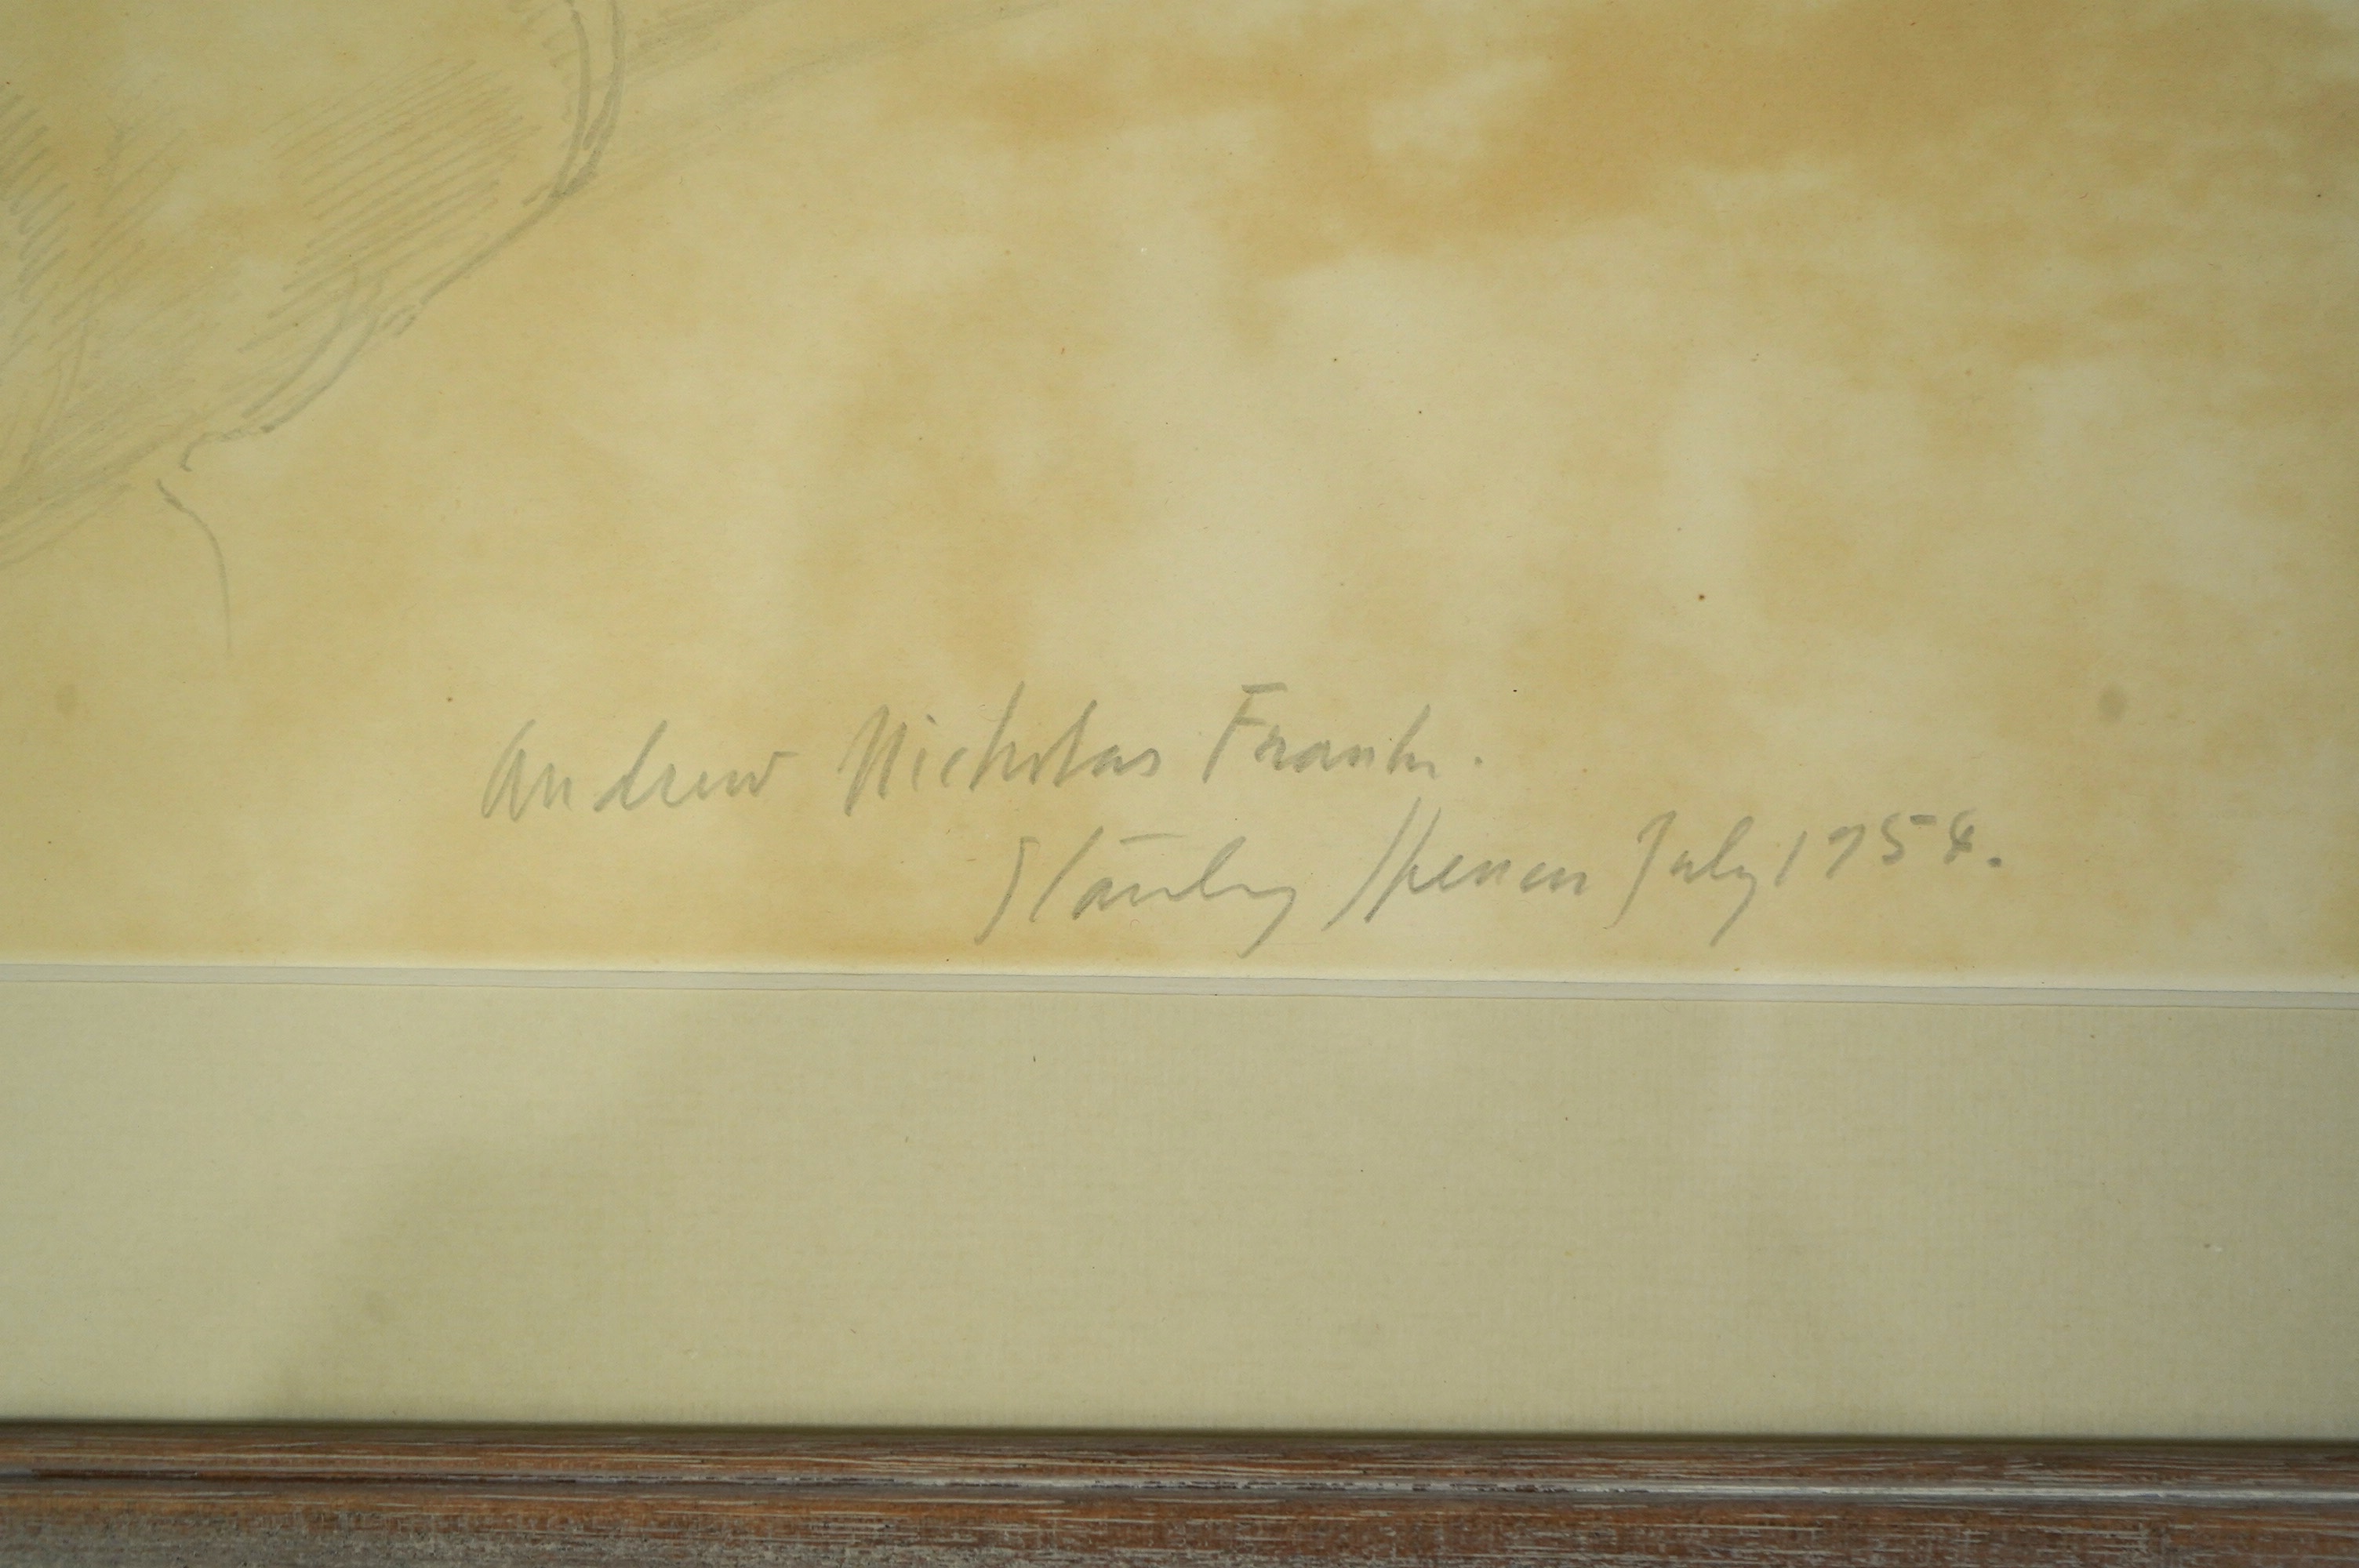 Andrew Nicholas Frank.
Stanley Spencer July 1954.